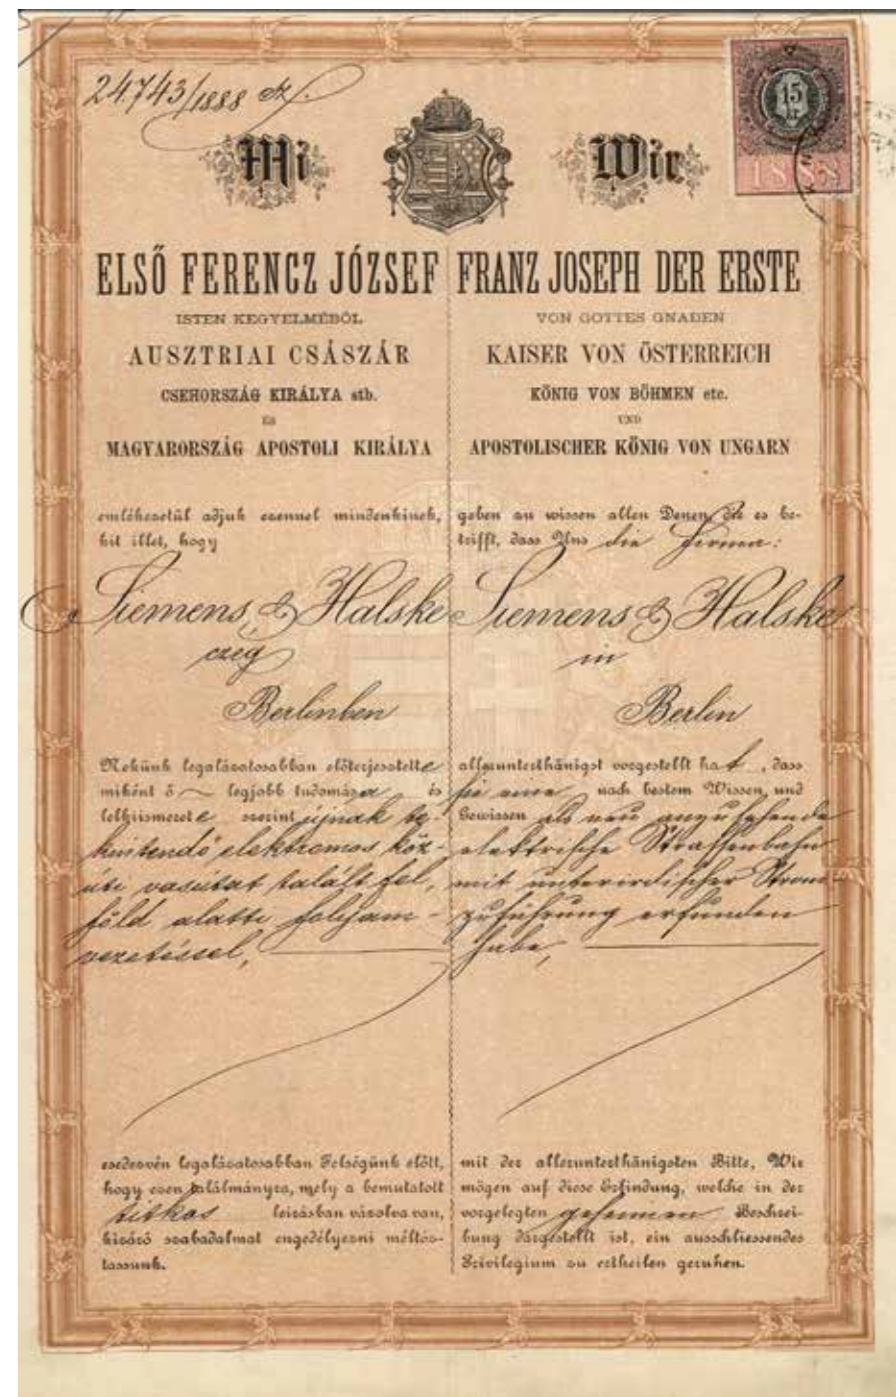 24743/1888 sz.
15
kr
1888
Mi
ELSŐ FERENCZ JÓZSEF
ISTEN KEGYELMÉBŐL
AUSZTRIAI CSÁSZÁR
CSEHORSZÁG KIRÁLYA stb.
ÉS
MAGYARORSZÁG APOSTOLI KIRÁLYA
emlékezetül adjuk ezennel mindenkinek,
kit illet, hogy
Siemens & Halske
czég
Berlinben
Nekünk legalázatosabban előterjesztette
miként ő legjobb tudomása és
lelkiismerete szerint újnak te-
kintendő elektromos köz-
úti vasútat talált fel,
föld alatti folyam-
vezetéssel,
esedezvén legalázatosabban Felségünk előtt,
hogy ezen találmányra, mely a bemutatott
titkos leirásban vázolva van,
kizáró szabadalmat engedélyezni méltóz-
tassunk.
Wir
FRANZ JOSEPH DER ERSTE
VON GOTTES GNADEN
KAISER VON ÖSTERREICH
KÖNIG VON BÖHMEN etc.
UND
APOSTOLISCHER KÖNIG VON UNGARN
geben zu wissen allen Denen, die es be-
trifft, dass Uns die Firma:
Siemens & Halske
in
Berlin
allerunterthänigst vorgestellt hat, dass
sie eine nach bestem Wissen und
Gewissen als neu anzusehende
elektrische Strassenbahn
mit unterirdischer Strom-
zuführung erfunden
habe,
mit der allerunterthänigsten Bitte, Wir
mögen auf diese Erfindung, welche in der
vorgelegten geheimen Beschrei-
bung dargestellt ist, ein ausschliessendes
Privilegium zu ertheilen geruhen.